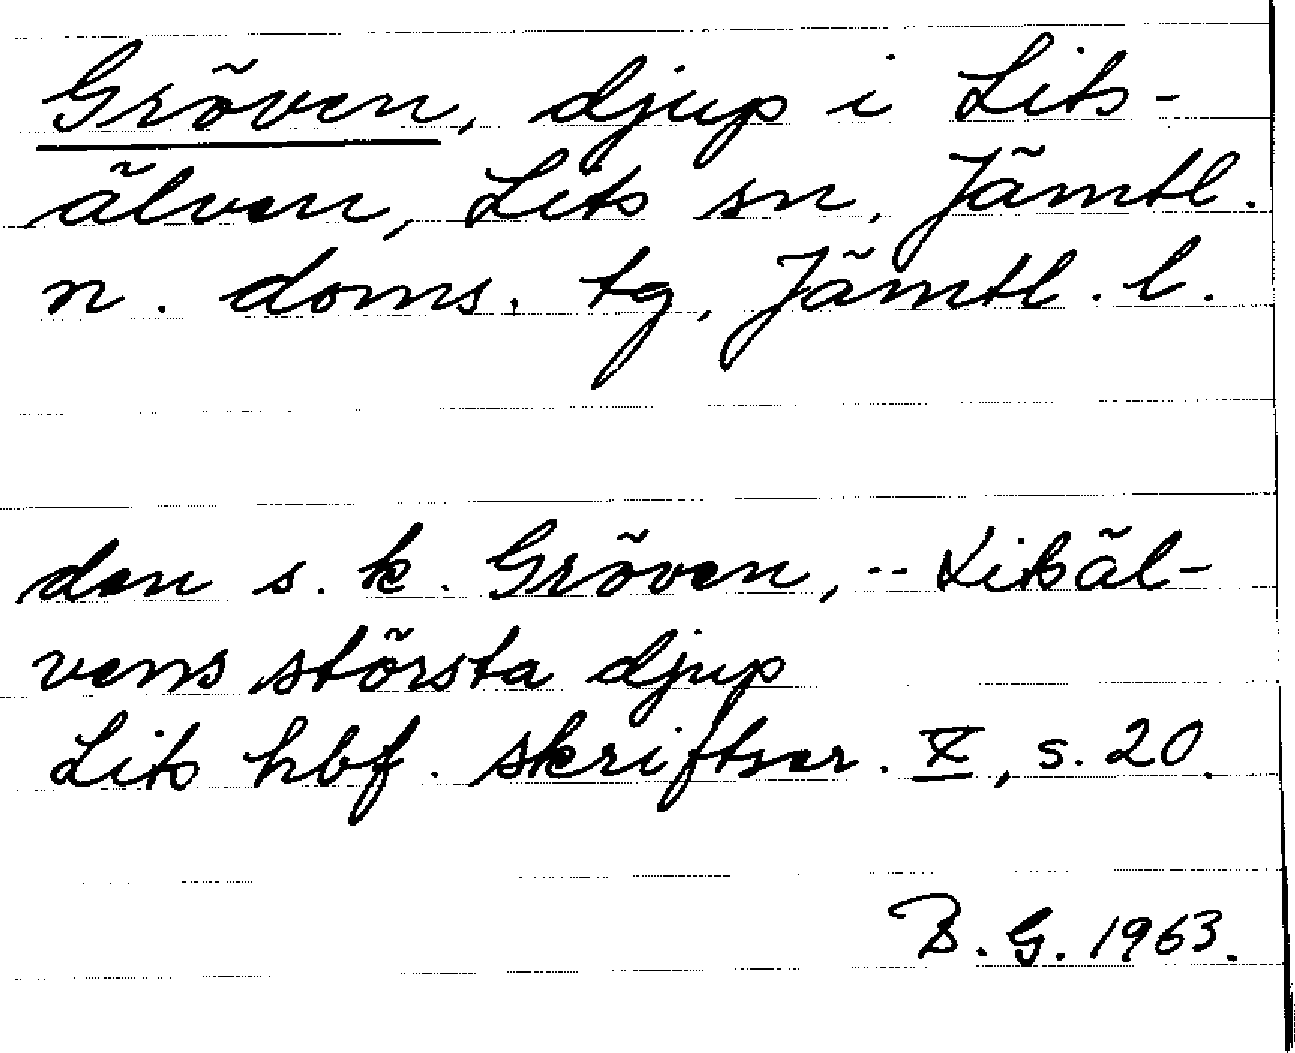 Gröven, djup i Lits-
älven, Lits sn, Jämtl.
n. doms. tg, Jämtl. l.
den s. k. Gröven, -- Litsäl-
vens största djup
Lits hbf. skriftser. X, s. 20.
B. G. 1963.